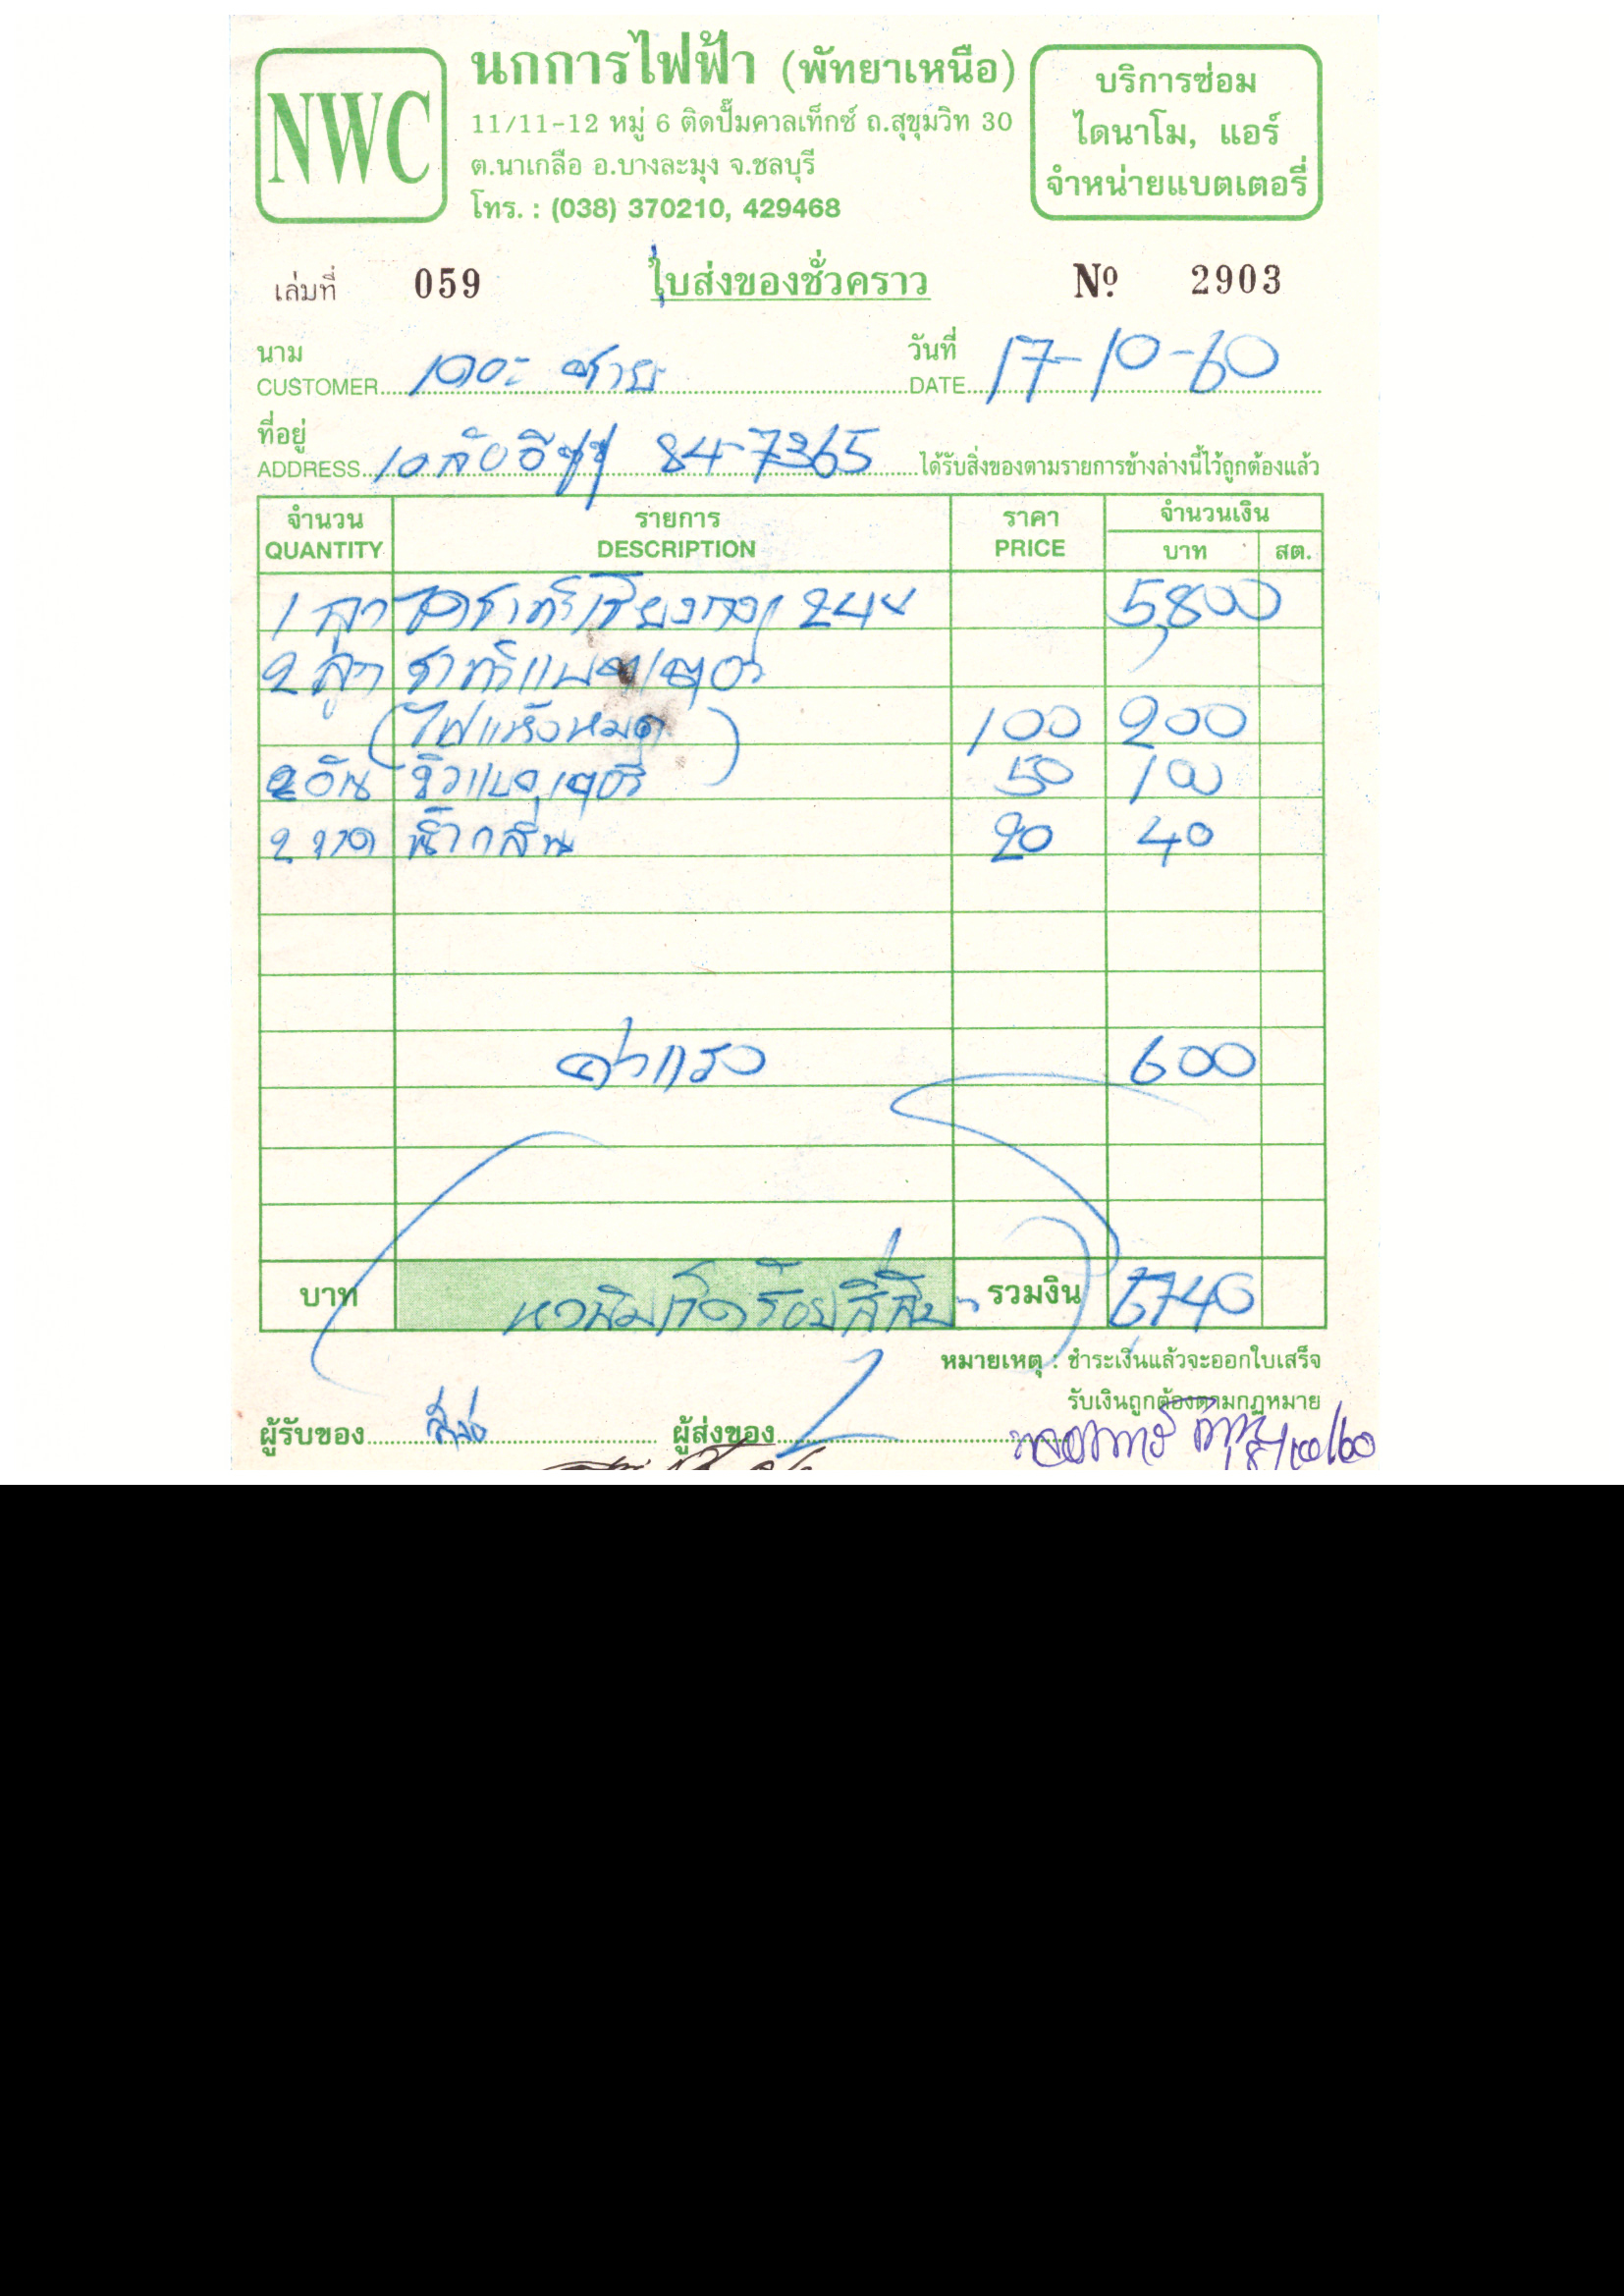 NWC
นกการไฟฟ้า (พัทยาเหนือ)
11/11-12 หมู่ 6 ติดปั๊มคาลเท็กซ์ ถ.สุขุมวิท 30
ต.นาเกลือ อ.บางละมุง จ.ชลบุรี
โทร. : (038) 370210, 429468
บริการซ่อม
ไดนาโม, แอร์
จำหน่ายแบตเตอรี่
เล่มที่ 059 ใบส่งของชั่วคราว Nº 2903
นาม วันที่
CUSTOMER เดอะ ชาย DATE 17-10-60
ที่อยู่
ADDRESS 10 ล้ออีซูซุ 84-7365 ได้รับสิ่งของตามรายการข้างล่างนี้ไว้ถูกต้องแล้ว
จำนวน รายการ ราคา จำนวนเงิน
QUANTITY DESCRIPTION PRICE บาท สต.
1 ลูก ไดชาร์ทเซียงกง 24v 5,800
2 ลูก ชาร์ทแบตเตอรี่
(ไฟแห้งหมด) 100 200
2 อัน ขั้วแบตเตอรี่ 50 100
2 ขวด น้ำกลั่น 20 40
ค่าแรง 600
บาท หกพันเจ็ดร้อยสี่สิบ รวมเงิน 6740
หมายเหตุ : ชำระเงินแล้วจะออกใบเสร็จ
รับเงินถูกต้องตามกฎหมาย
ผู้รับของ ผู้ส่งของ
18/10/60